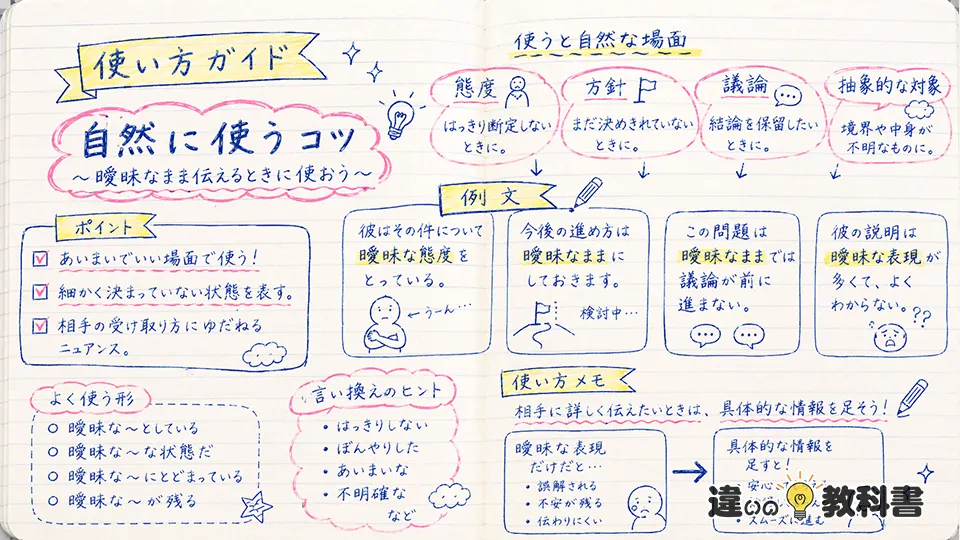 使い方ガイド
自然に使うコツ
〜曖昧なまま伝えるときに使おう〜
ポイント
あいまいでいい場面で使う!
細かく決まっていない状態を表す。
相手の受け取り方にゆだねる
ニュアンス。
よく使う形
曖昧な〜としている
曖昧な〜な状態だ
曖昧な〜にとどまっている
曖昧な〜が残る
言い換えのヒント
・はっきりしない
・ぼんやりした
・あいまいな
・不明確な
など
使うと自然な場面
態度
はっきり断定しない
ときに。
方針
まだ決めきれていない
ときに。
議論
結論を保留したい
ときに。
抽象的な対象
境界や中身が
不明なものに。
例文
彼はその件について
曖昧な態度を
とっている。
←うーん…
今後の進め方は
曖昧なままに
しておきます。
検討中…
この問題は
曖昧なままでは
議論が前に
進まない。
彼の説明は
曖昧な表現が
多くて、よく
わからない。??
使い方メモ
相手に詳しく伝えたいときは、具体的な情報を足そう!
曖昧な表現
だけだと…
・誤解される
・不安が残る
・伝わりにくい
→
具体的な情報を
足すと!
安心
・スムーズに進む
違いの教科書